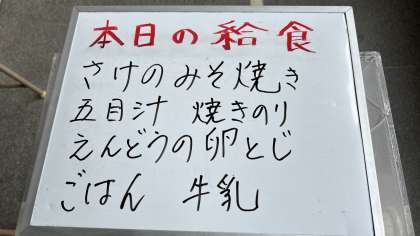 本日の給食
さけのみそ焼き
五目汁 焼きのり
えんどうの卵とじ
ごはん 牛乳